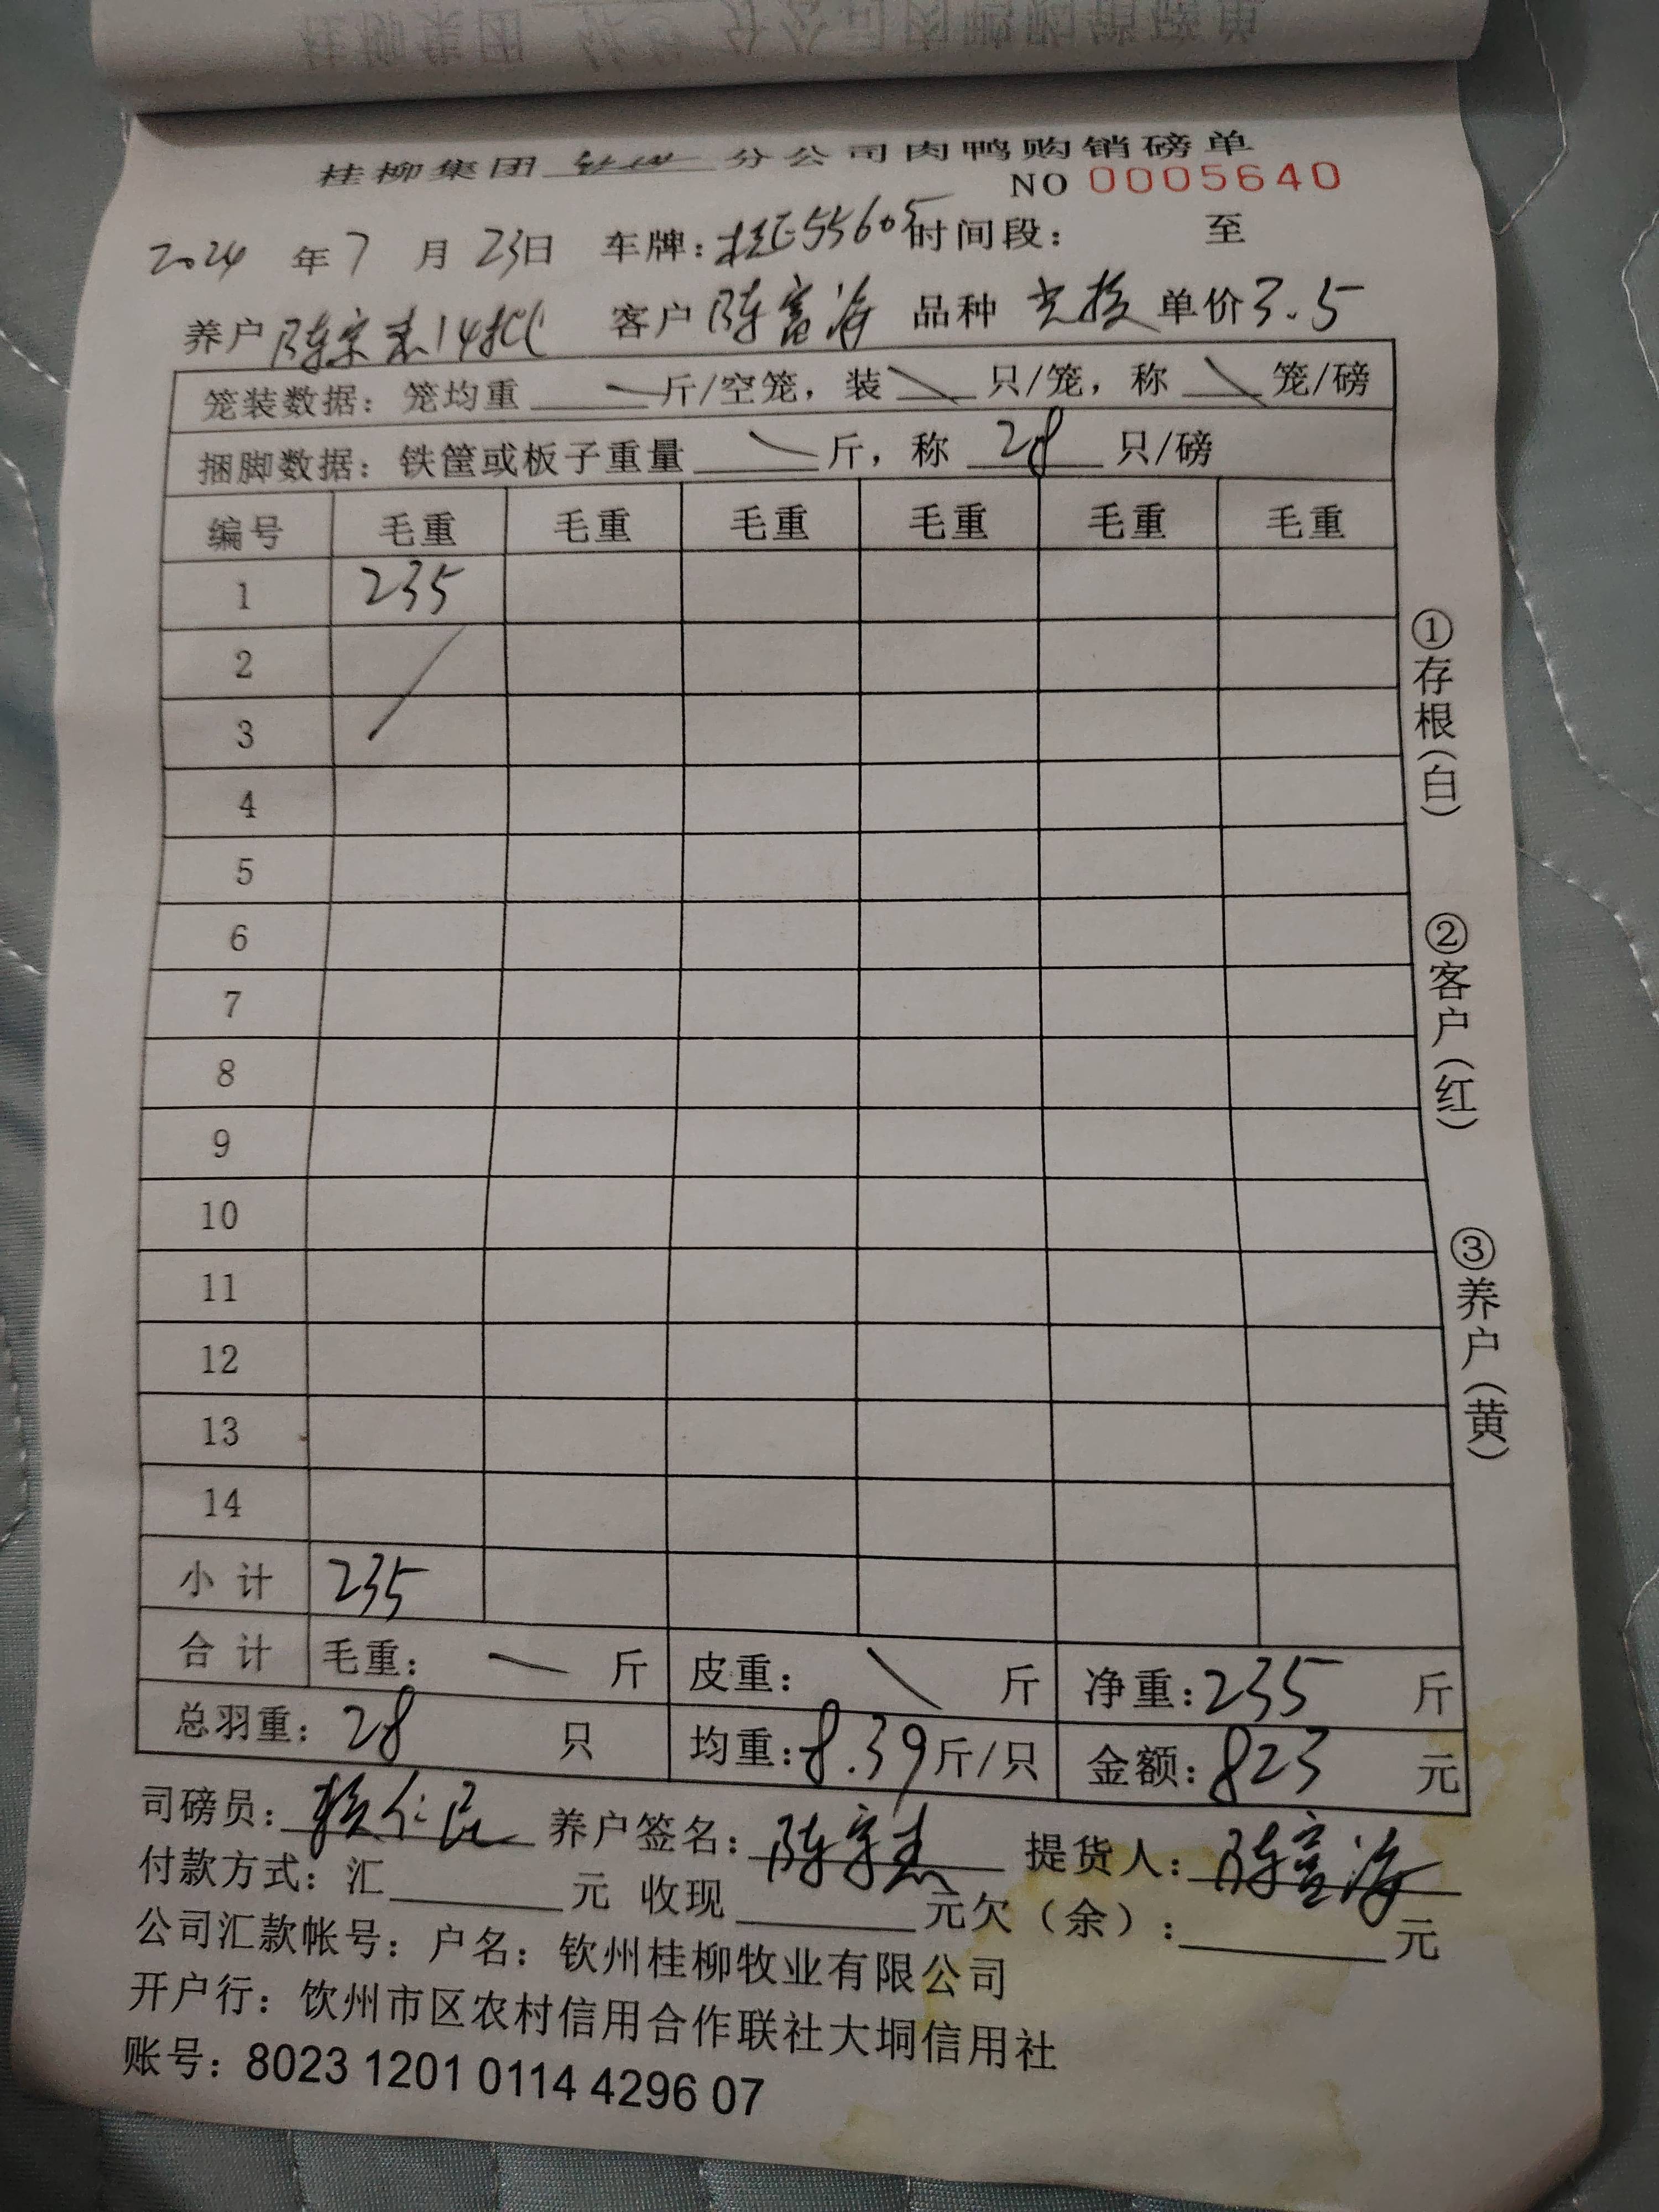 桂柳集团 分公司肉鸭购销磅单
NO 0005640
2024 年 7 月 23 日 车牌: 55605 时间段: 至
养户 陈宗杰14批 客户 陈富海 品种 单价 3.5
笼装数据: 笼均重 斤/空笼, 装 只/笼, 称 笼/磅
捆脚数据: 铁筐或板子重量 斤, 称 28 只/磅
编号 毛重 毛重 毛重 毛重 毛重 毛重
1 235
2
3
4
5
6
7
8
9
10
11
12
13
14
小计 235
合计 毛重: 斤 皮重: 斤 净重: 235 斤
总羽重: 28 只 均重: 8.39 斤/只 金额: 823 元
司磅员: 仁 养户签名: 陈宗杰 提货人: 陈富海
付款方式: 汇 元 收现 元欠(余): 元
公司汇款帐号: 户名: 钦州桂柳牧业有限公司
开户行: 饮州市区农村信用合作联社大垌信用社
账号: 8023 1201 0114 4296 07
①存根(白)
②客户(红)
③养户(黄)